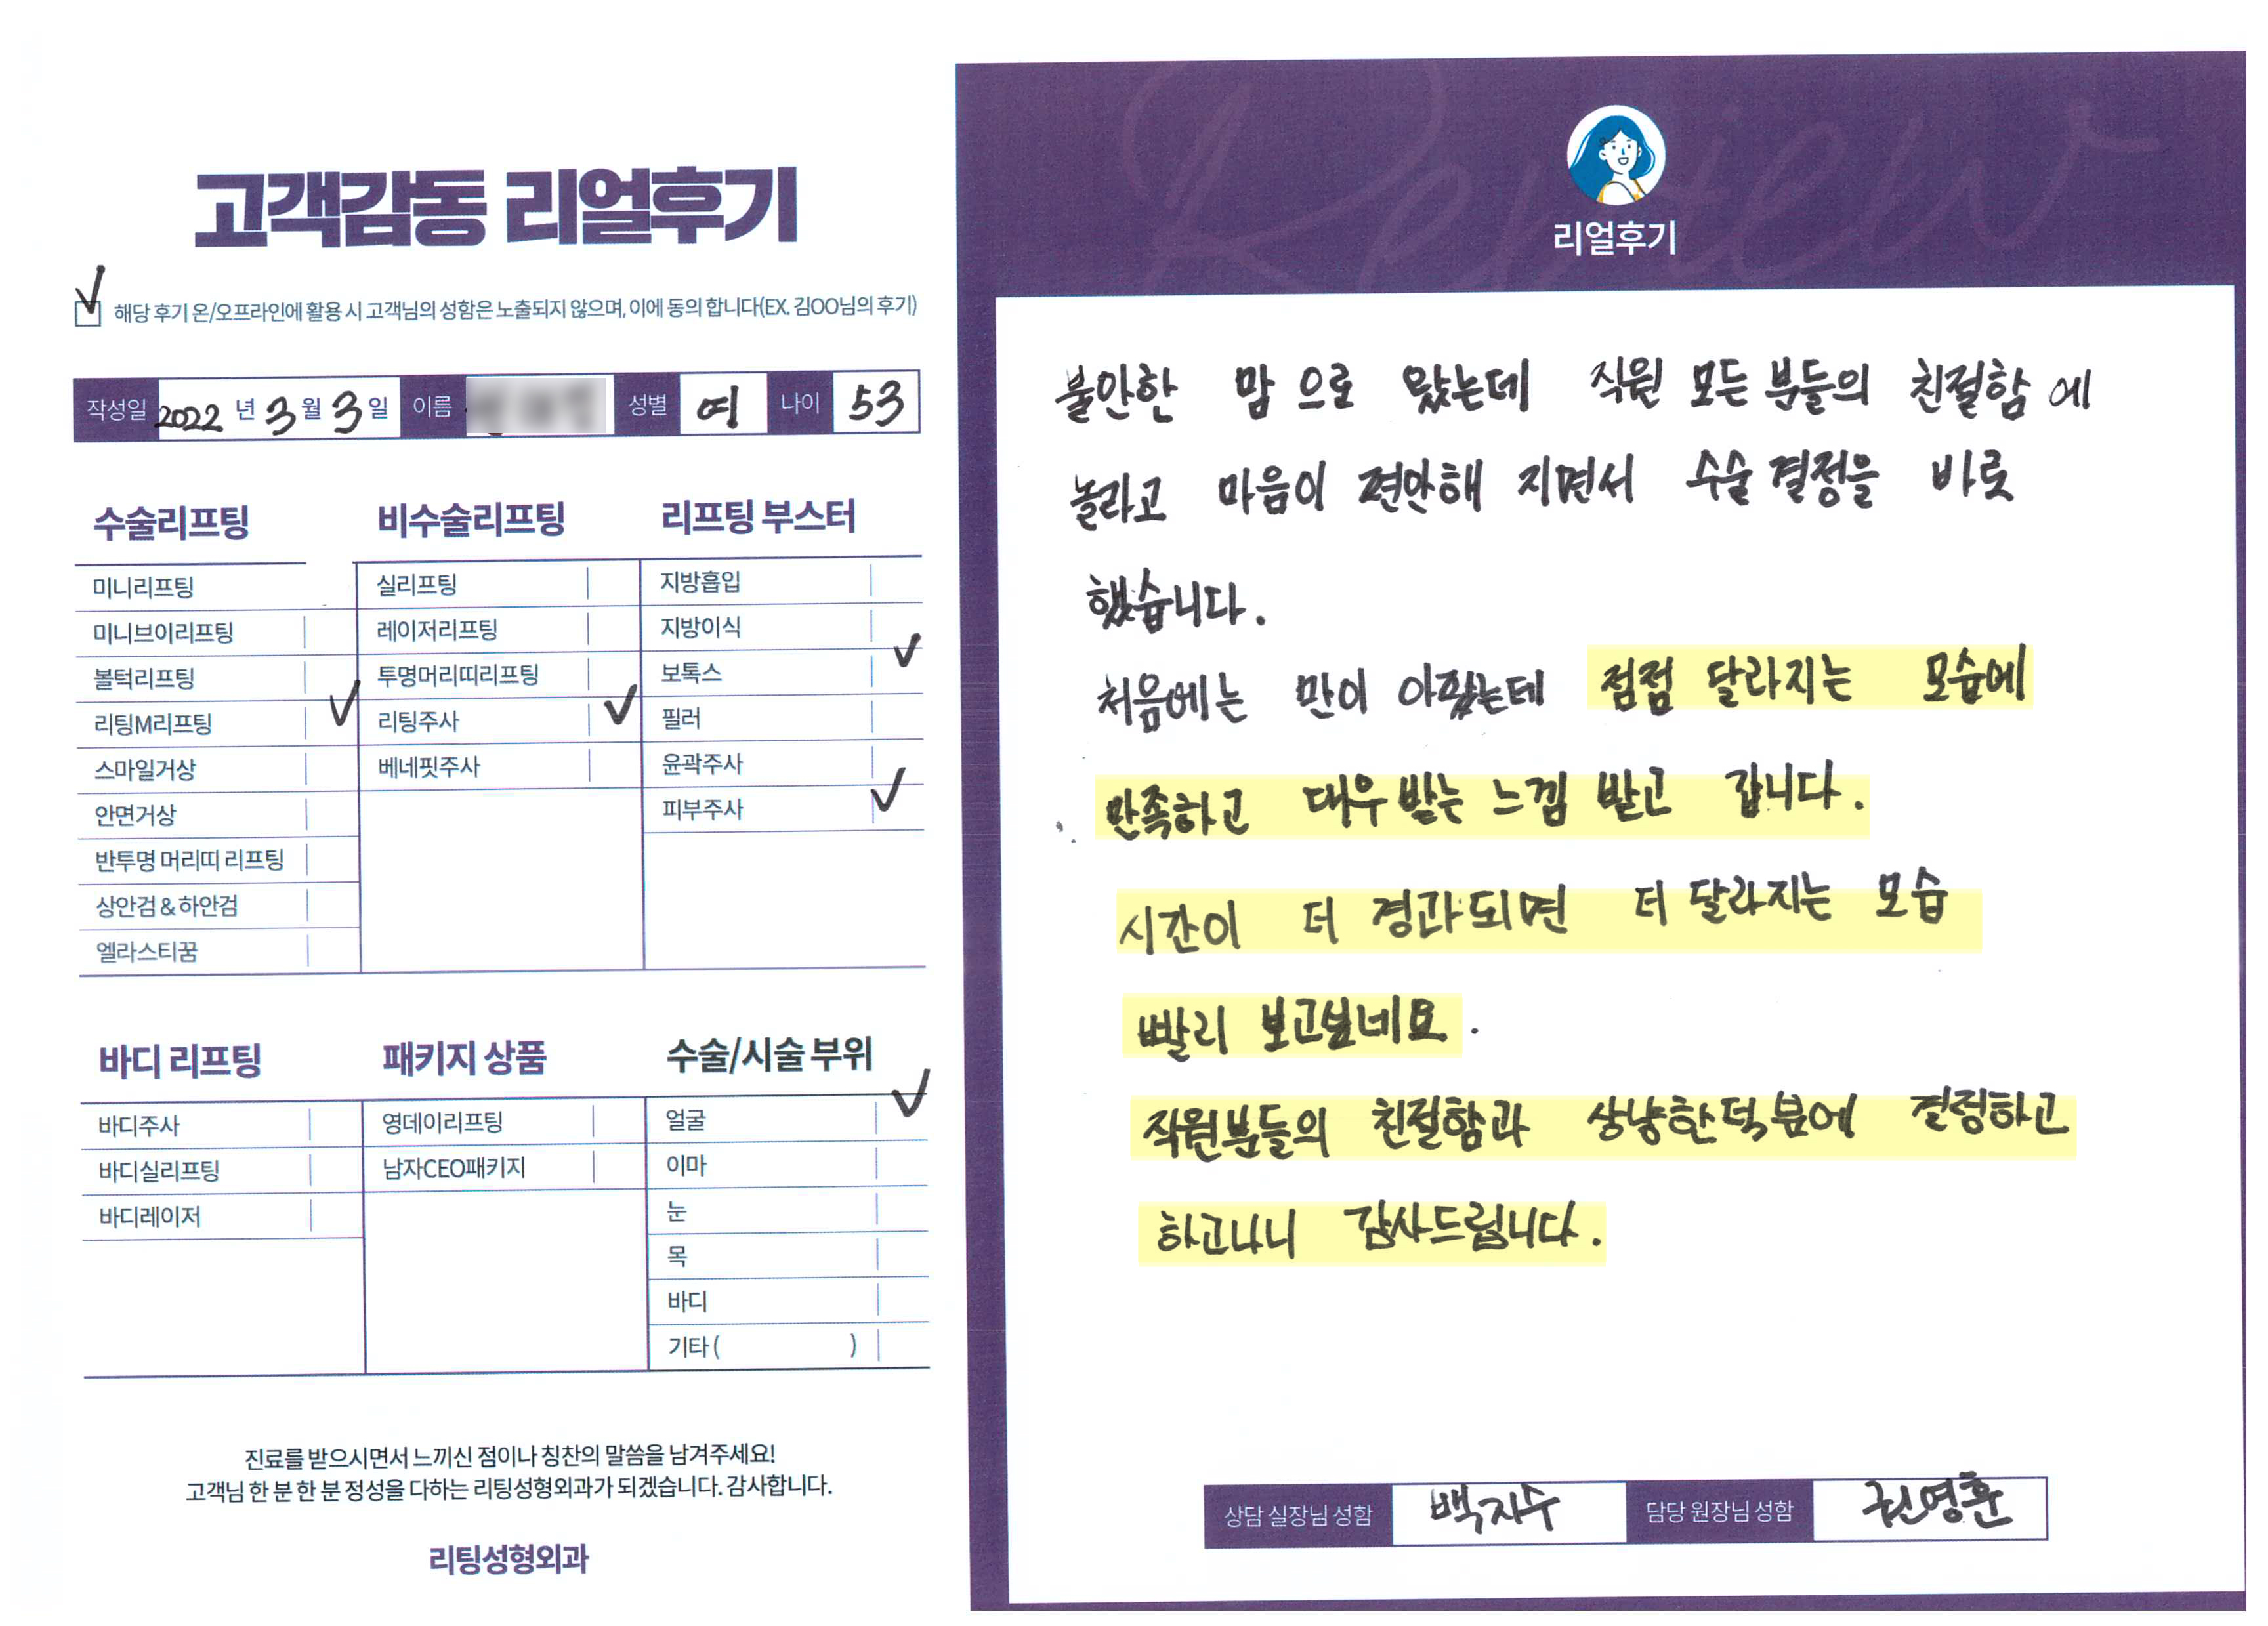 고객감동 리얼후기
해당 후기 온/오프라인에 활용 시 고객님의 성함은 노출되지 않으며, 이에 동의 합니다(EX. 김OO님의 후기)
작성일 2022 년 3 월 3 일 이름 성별 여 나이 53
수술리프팅
미니리프팅
미니브이리프팅
볼턱리프팅
리팅M리프팅
스마일거상
안면거상
반투명 머리띠 리프팅
상안검 & 하안검
엘라스티꿈
비수술리프팅
실리프팅
레이저리프팅
투명머리띠리프팅
리팅주사
베네핏주사
리프팅 부스터
지방흡입
지방이식
보톡스
필러
윤곽주사
피부주사
바디 리프팅
바디주사
바디실리프팅
바디레이저
패키지 상품
영데이리프팅
남자CEO패키지
수술/시술 부위
얼굴
이마
눈
목
바디
기타 ( )
진료를 받으시면서 느끼신 점이나 칭찬의 말씀을 남겨주세요!
고객님 한 분 한 분 정성을 다하는 리팅성형외과가 되겠습니다. 감사합니다.
리팅성형외과
Review
리얼후기
불안한 맘 으로 왔는데 직원 모든 분들의 친절함 에
놀라고 마음이 편안해 지면서 수술 결정을 바로
했습니다.
처음에는 만이 아팠는데 점점 달라지는 모습에
만족하고 대우 받는 느낌 받고 갑니다.
시간이 더 경과되면 더 달라지는 모습
빨리 보고싶네요.
직원분들의 친절함과 상냥한덕분에 결정하고
하고나니 감사드립니다.
상담 실장님 성함 백지수 담당 원장님 성함 권영훈